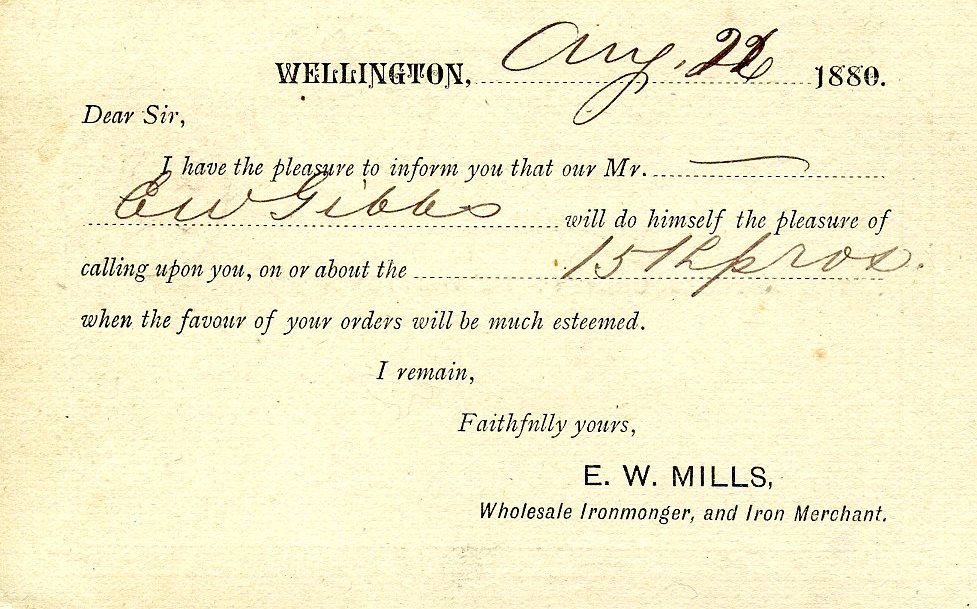 WELLINGTON, Aug. 1880.
Dear Sir,
I have the pleasure to inform you that our Mr.
E W Gibbs will do himself the pleasure of
calling upon you, on or about the 15th prox.
when the favour of your orders will be much esteemed.
I remain,
Faithfnlly yours,
E. W. MILLS,
Wholesale Ironmonger, and Iron Merchant.